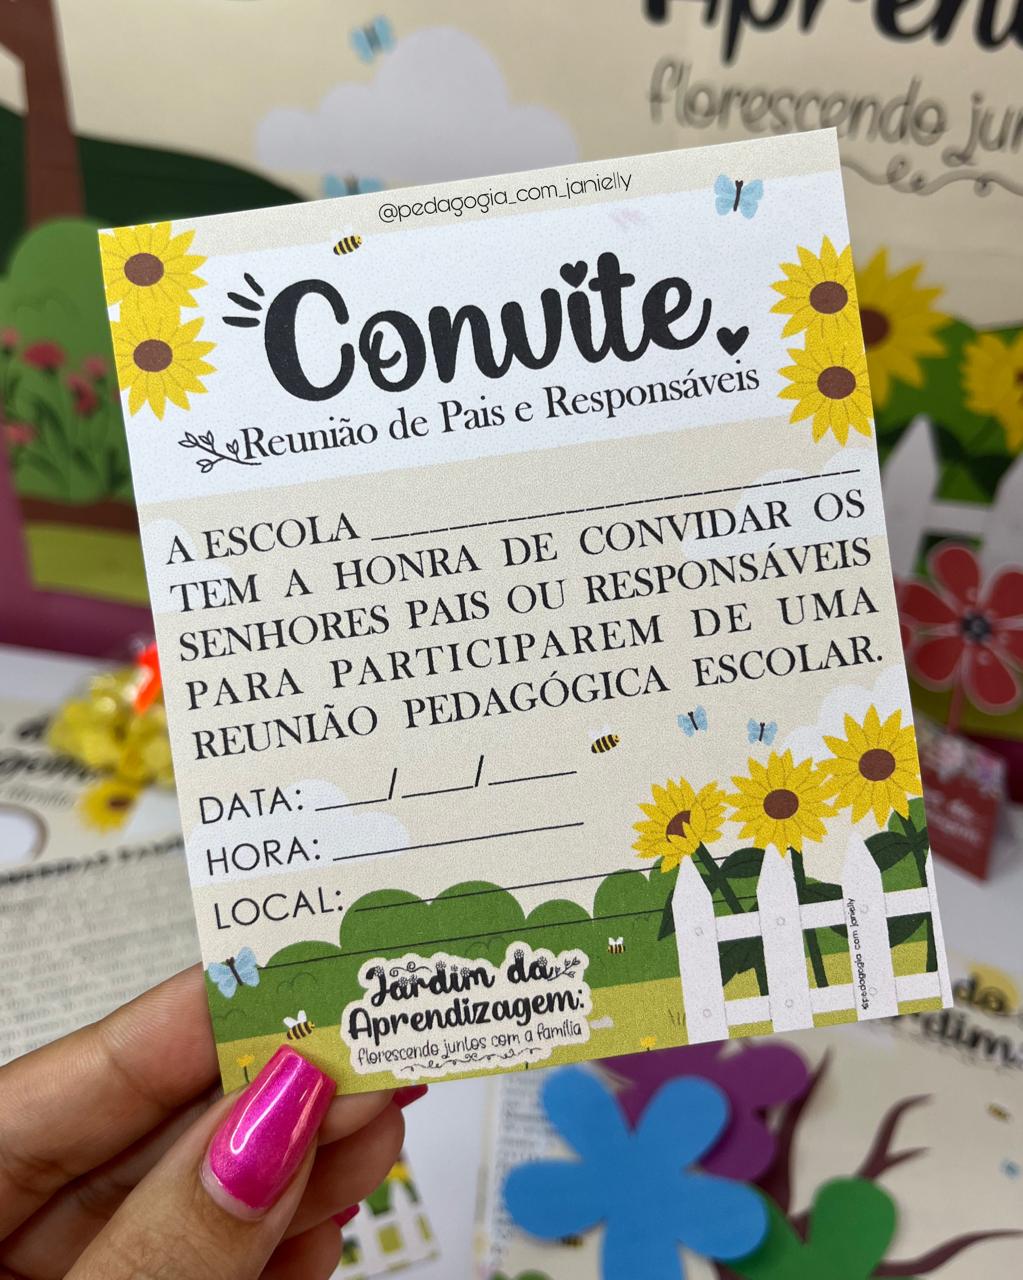 florescendo
@pedagogia_com_janielly
Convite
Reunião de Pais e Responsáveis
A ESCOLA ____________________
TEM A HONRA DE CONVIDAR OS
SENHORES PAIS OU RESPONSÁVEIS
PARA PARTICIPAREM DE UMA
REUNIÃO PEDAGÓGICA ESCOLAR.
DATA: ____/____/____
HORA: ____________
LOCAL: ____________
Jardim da
Aprendizagem:
florescendo juntos com a família
@Pedagogia com janielly